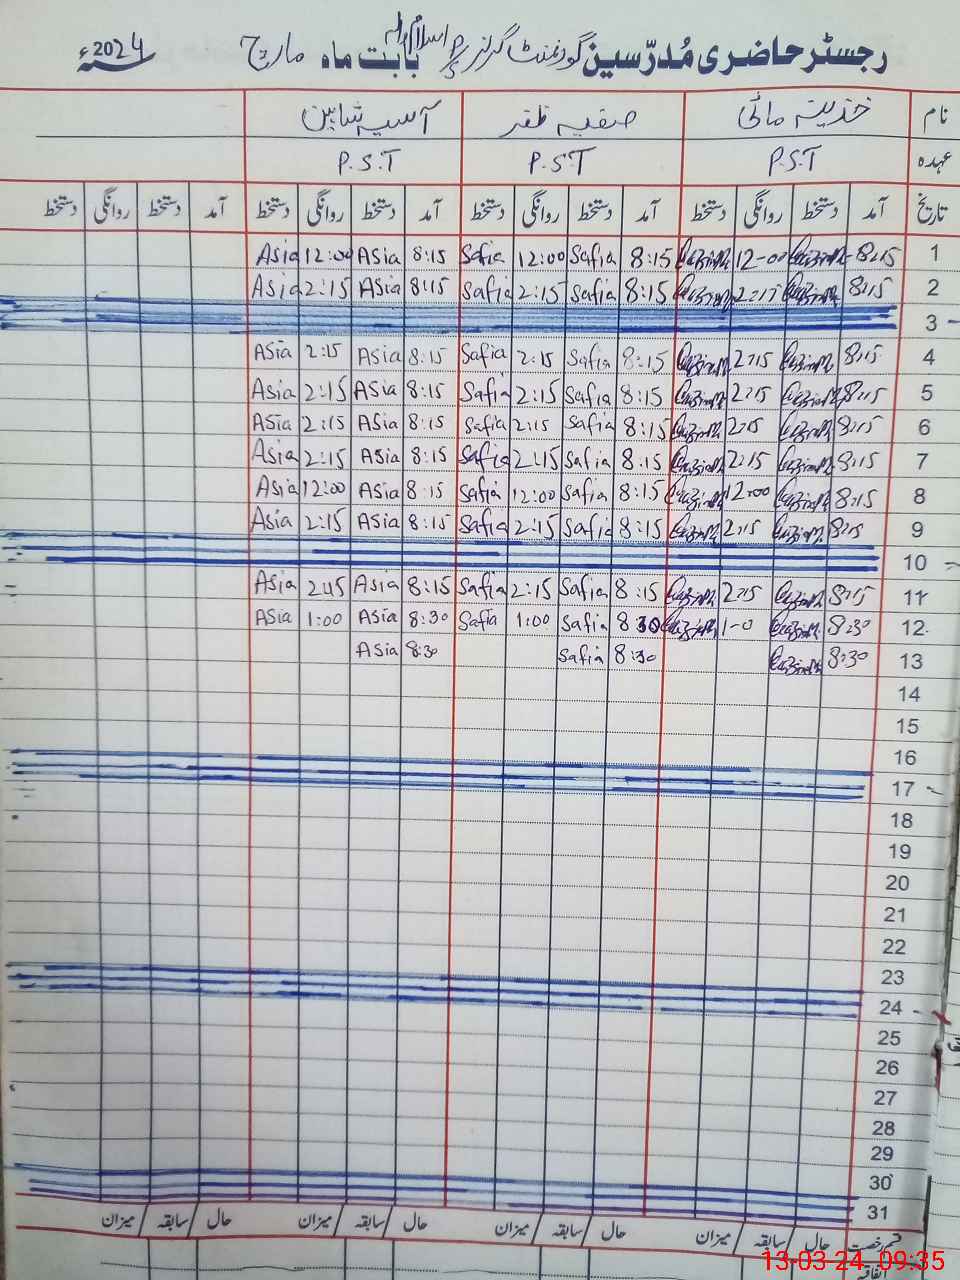 رجسٹر حاضری مُدرّسین گورنمنٹ گرلز P/S بابت ماہ مارچ 2024ء
نام خدیتہ مائی صفیہ ظفر آسیہ شاہین
عہدہ P.S.T P.S.T P.S.T
تاریخ آمد دستخط روانگی دستخط آمد دستخط روانگی دستخط آمد دستخط روانگی دستخط آمد دستخط روانگی دستخط
1 8:15 12-00 8:15 Safia 12:00 Safia 8:15 Asia 12:00 Asia
2 8:15 2:15 8:15 Safia 2:15 Safia 8:15 Asia 2:15 Asia
3
4 8:15 2:15 8:15 Safia 2:15 Safia 8:15 Asia 2:15 Asia
5 8:15 2:15 8:15 Safia 2:15 Safia 8:15 Asia 2:15 Asia
6 8:15 2:15 8:15 Safia 2:15 Safia 8:15 Asia 2:15 Asia
7 8:15 2:15 8:15 Safia 2:15 Safia 8:15 Asia 2:15 Asia
8 8:15 12-00 8:15 Safia 12:00 Safia 8:15 Asia 12:00 Asia
9 8:15 2:15 8:15 Safia 2:15 Safia 8:15 Asia 2:15 Asia
10
11 8:15 2:15 8:15 Safia 2:15 Safia 8:15 Asia 2:15 Asia
12 8:30 1-0 8:30 Safia 1:00 Safia 8:30 Asia 1:00 Asia
13 8:30 8:30 Safia 8:30 Asia
14
15
16
17
18
19
20
21
22
23
24
25
26
27
28
29
30
31
قسم رخصت حال / سابقہ / میزان حال / سابقہ / میزان حال / سابقہ / میزان حال / سابقہ / میزان
اتفاقیہ
13-03-24 09:35